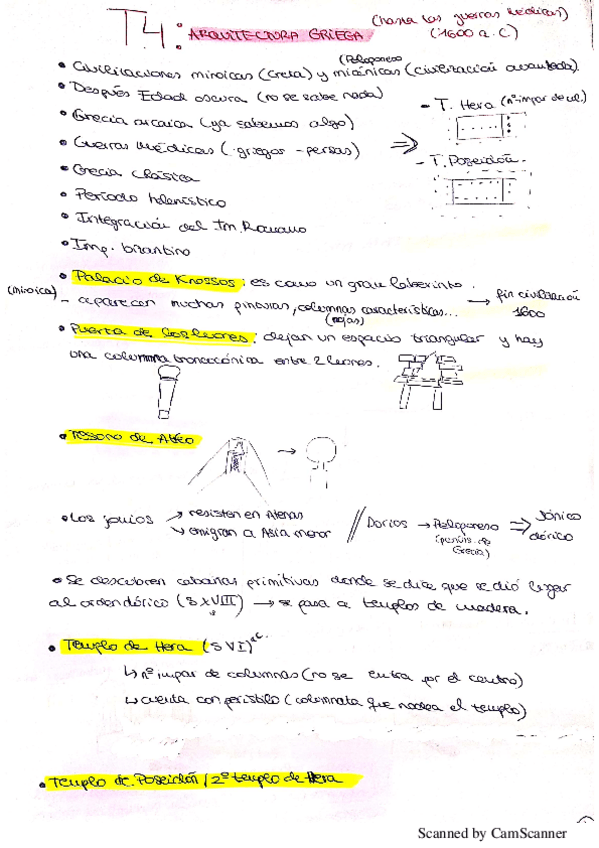 T.4: ARQUITECTURA GRIEGA (hasta las guerras médicas)
(1600 a.C)
• Civilizaciones minoicas (Creta) y micénicas (civilización avanzada).
(Peloponeso
• Después Edad oscura (no se sabe nada)
• Grecia arcaica (ya sabemos algo)
• Guerras Médicas (griegos - persas)
• Grecia Clásica
• Período helenístico
• Integración del Im. Romano
• Imp. bizantino
⇒
- T. Hera (nº impar de col.)
- T. Poseidón.
• Palacio de Knossos: es como un gran laberinto.
(minoica)
- aparecen muchas pinturas, columnas características...
(rojas)
→ fin civilización
1600
• Puerta de los leones: dejan un espacio triangular y hay
una columna troncocónica entre 2 leones.
• Tesoro de Atreo
→
• Los jonios → resisten en Atenas
↘ emigran a Asia menor
// Dorios → Peloponeso ⇒ Jónico
(península de Grecia)
dórico
• Se descubren cabañas primitivas donde se dice que se dió lugar
al orden dórico (S XVIII) → se pasa a templos de madera.
• Templo de Hera (S VI) a.C.
↳ nº impar de columnas (no se entra por el centro)
↳ cuenta con peristilo (columnata que rodea el templo)
• Templo de Poseidón / 2º templo de Hera
Scanned by CamScanner